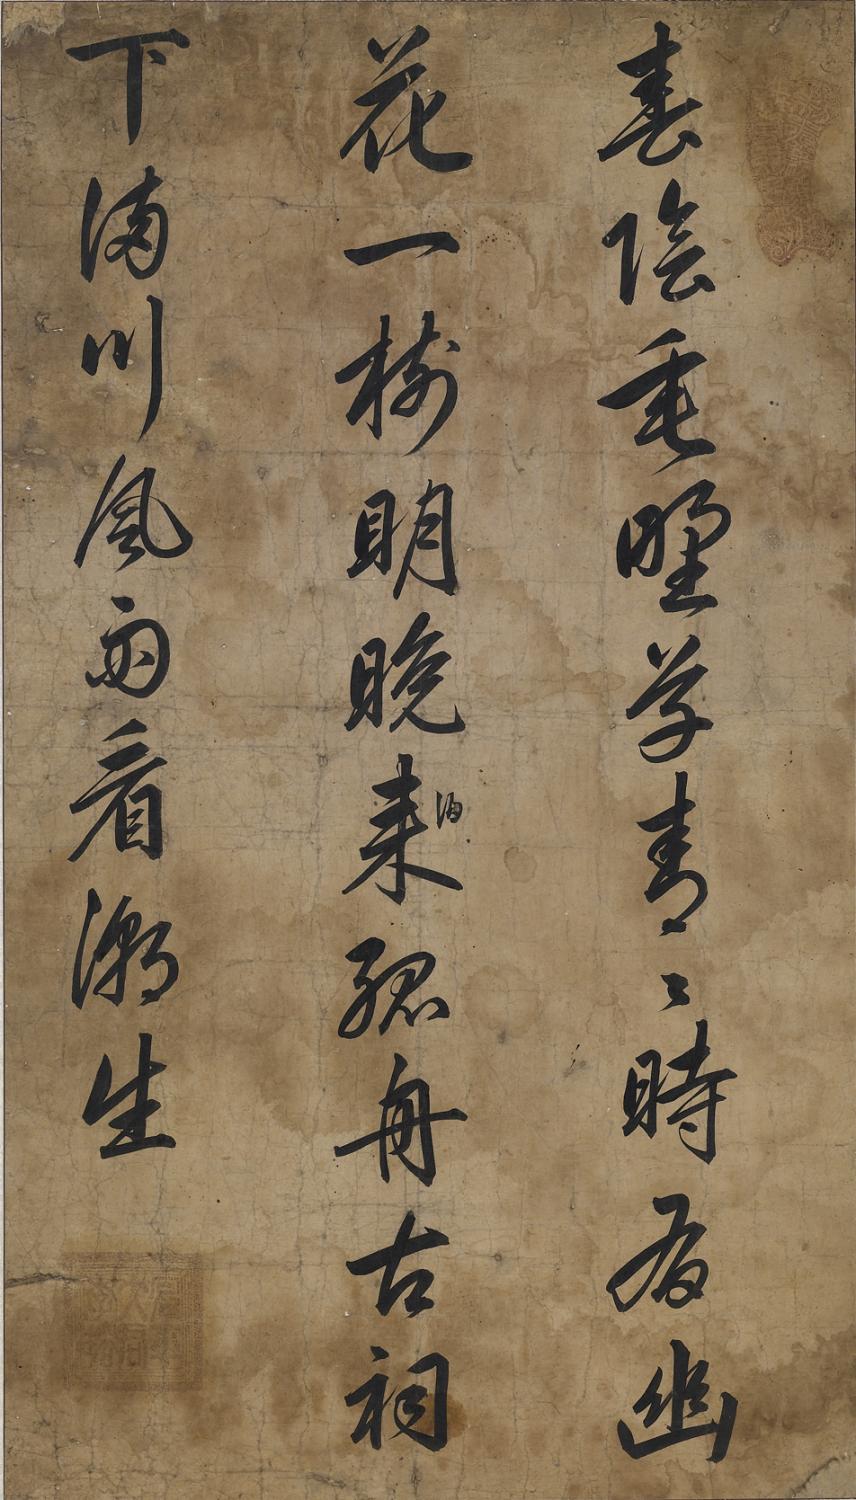 春陰垂野草青々時有幽
花一樹明晚来泊孤舟古祠
下滿川風雨看潮生